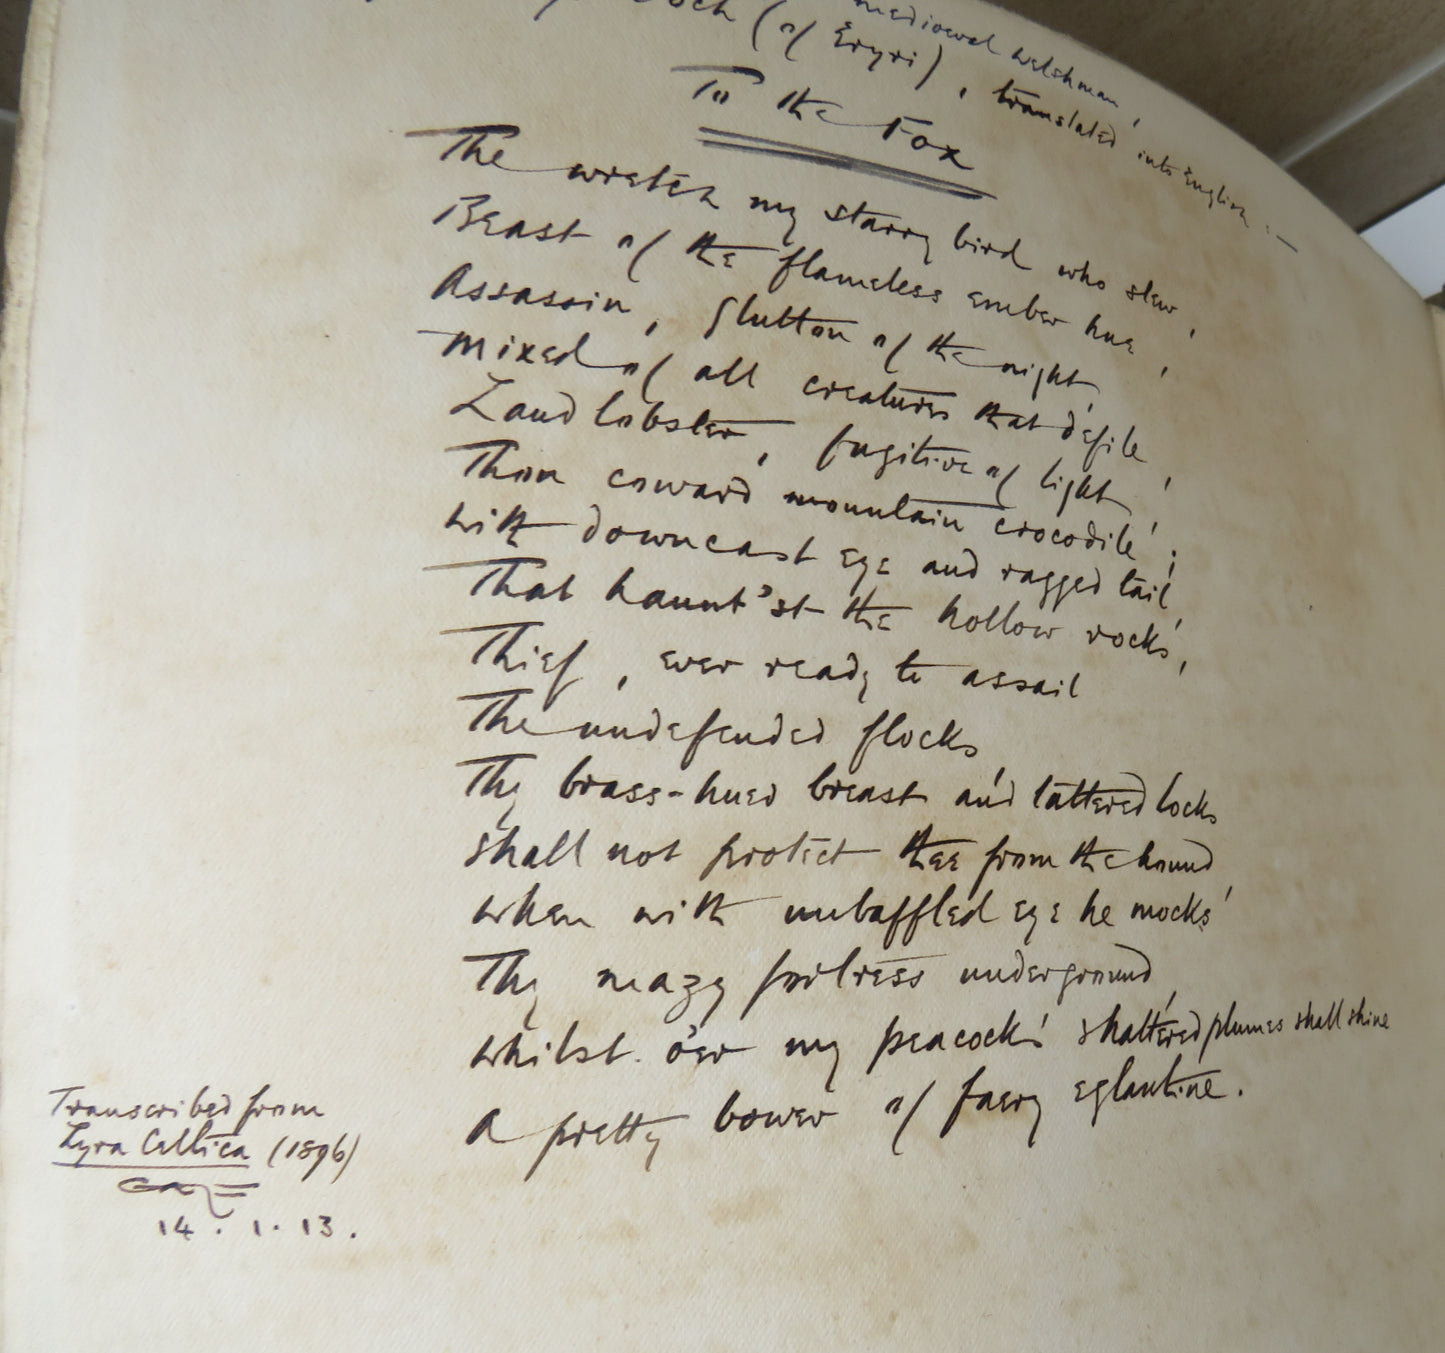 mediaeval welshman,
(of Eryri), translated into English :—
To the Fox
The wretch my starry bird who slew,
Beast of the flameless ember hue,
Assassin, glutton of the night,
Mixed of all creatures that defile,
Land lobster, fugitive of light,
Thou coward mountain crocodile;
With downcast eye and ragged tail,
That haunt'st the hollow rocks,
Thief, ever ready to assail
The undefended flocks,
Thy brass-hued breast and tattered locks
Shall not protect thee from the hound,
When with unbaffled eye he mocks
Thy mazy fortress underground,
Whilst o'er my peacock's shattered plumes shall shine
A pretty bower of faery eglantine.
Transcribed from
Lyra Celtica (1896)
14 . 1 . 13 .